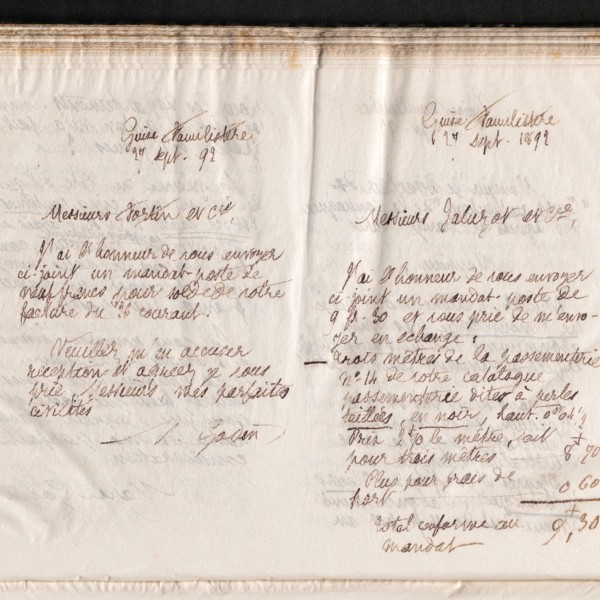 Guise Familistère
27 sept. 92
Messieurs Fortin et Cie,
J'ai l'honneur de vous envoyer
ci-joint un mandat-poste de
neuf francs pour solde de votre
facture du 26 courant.
Veuillez m'en accuser
réception et agréer je vous
prie, Messieurs, mes parfaites
civilités
Godin
Guise Familistère
27 sept. 1892
Messieurs Jaluzot et Cie,
J'ai l'honneur de vous envoyer
ci-joint un mandat-poste de
9 fr. 30 et vous prie de m'envo-
yer en échange :
trois mètres de la passementerie
n° 14 de votre catalogue
passementerie dites à perles
taillées, en noir, haut. 0m04
Prix 2f90 le mètre, soit
pour trois mètres 8 70
Plus pour frais de
port 0 60
Total conforme au 9,30
mandat